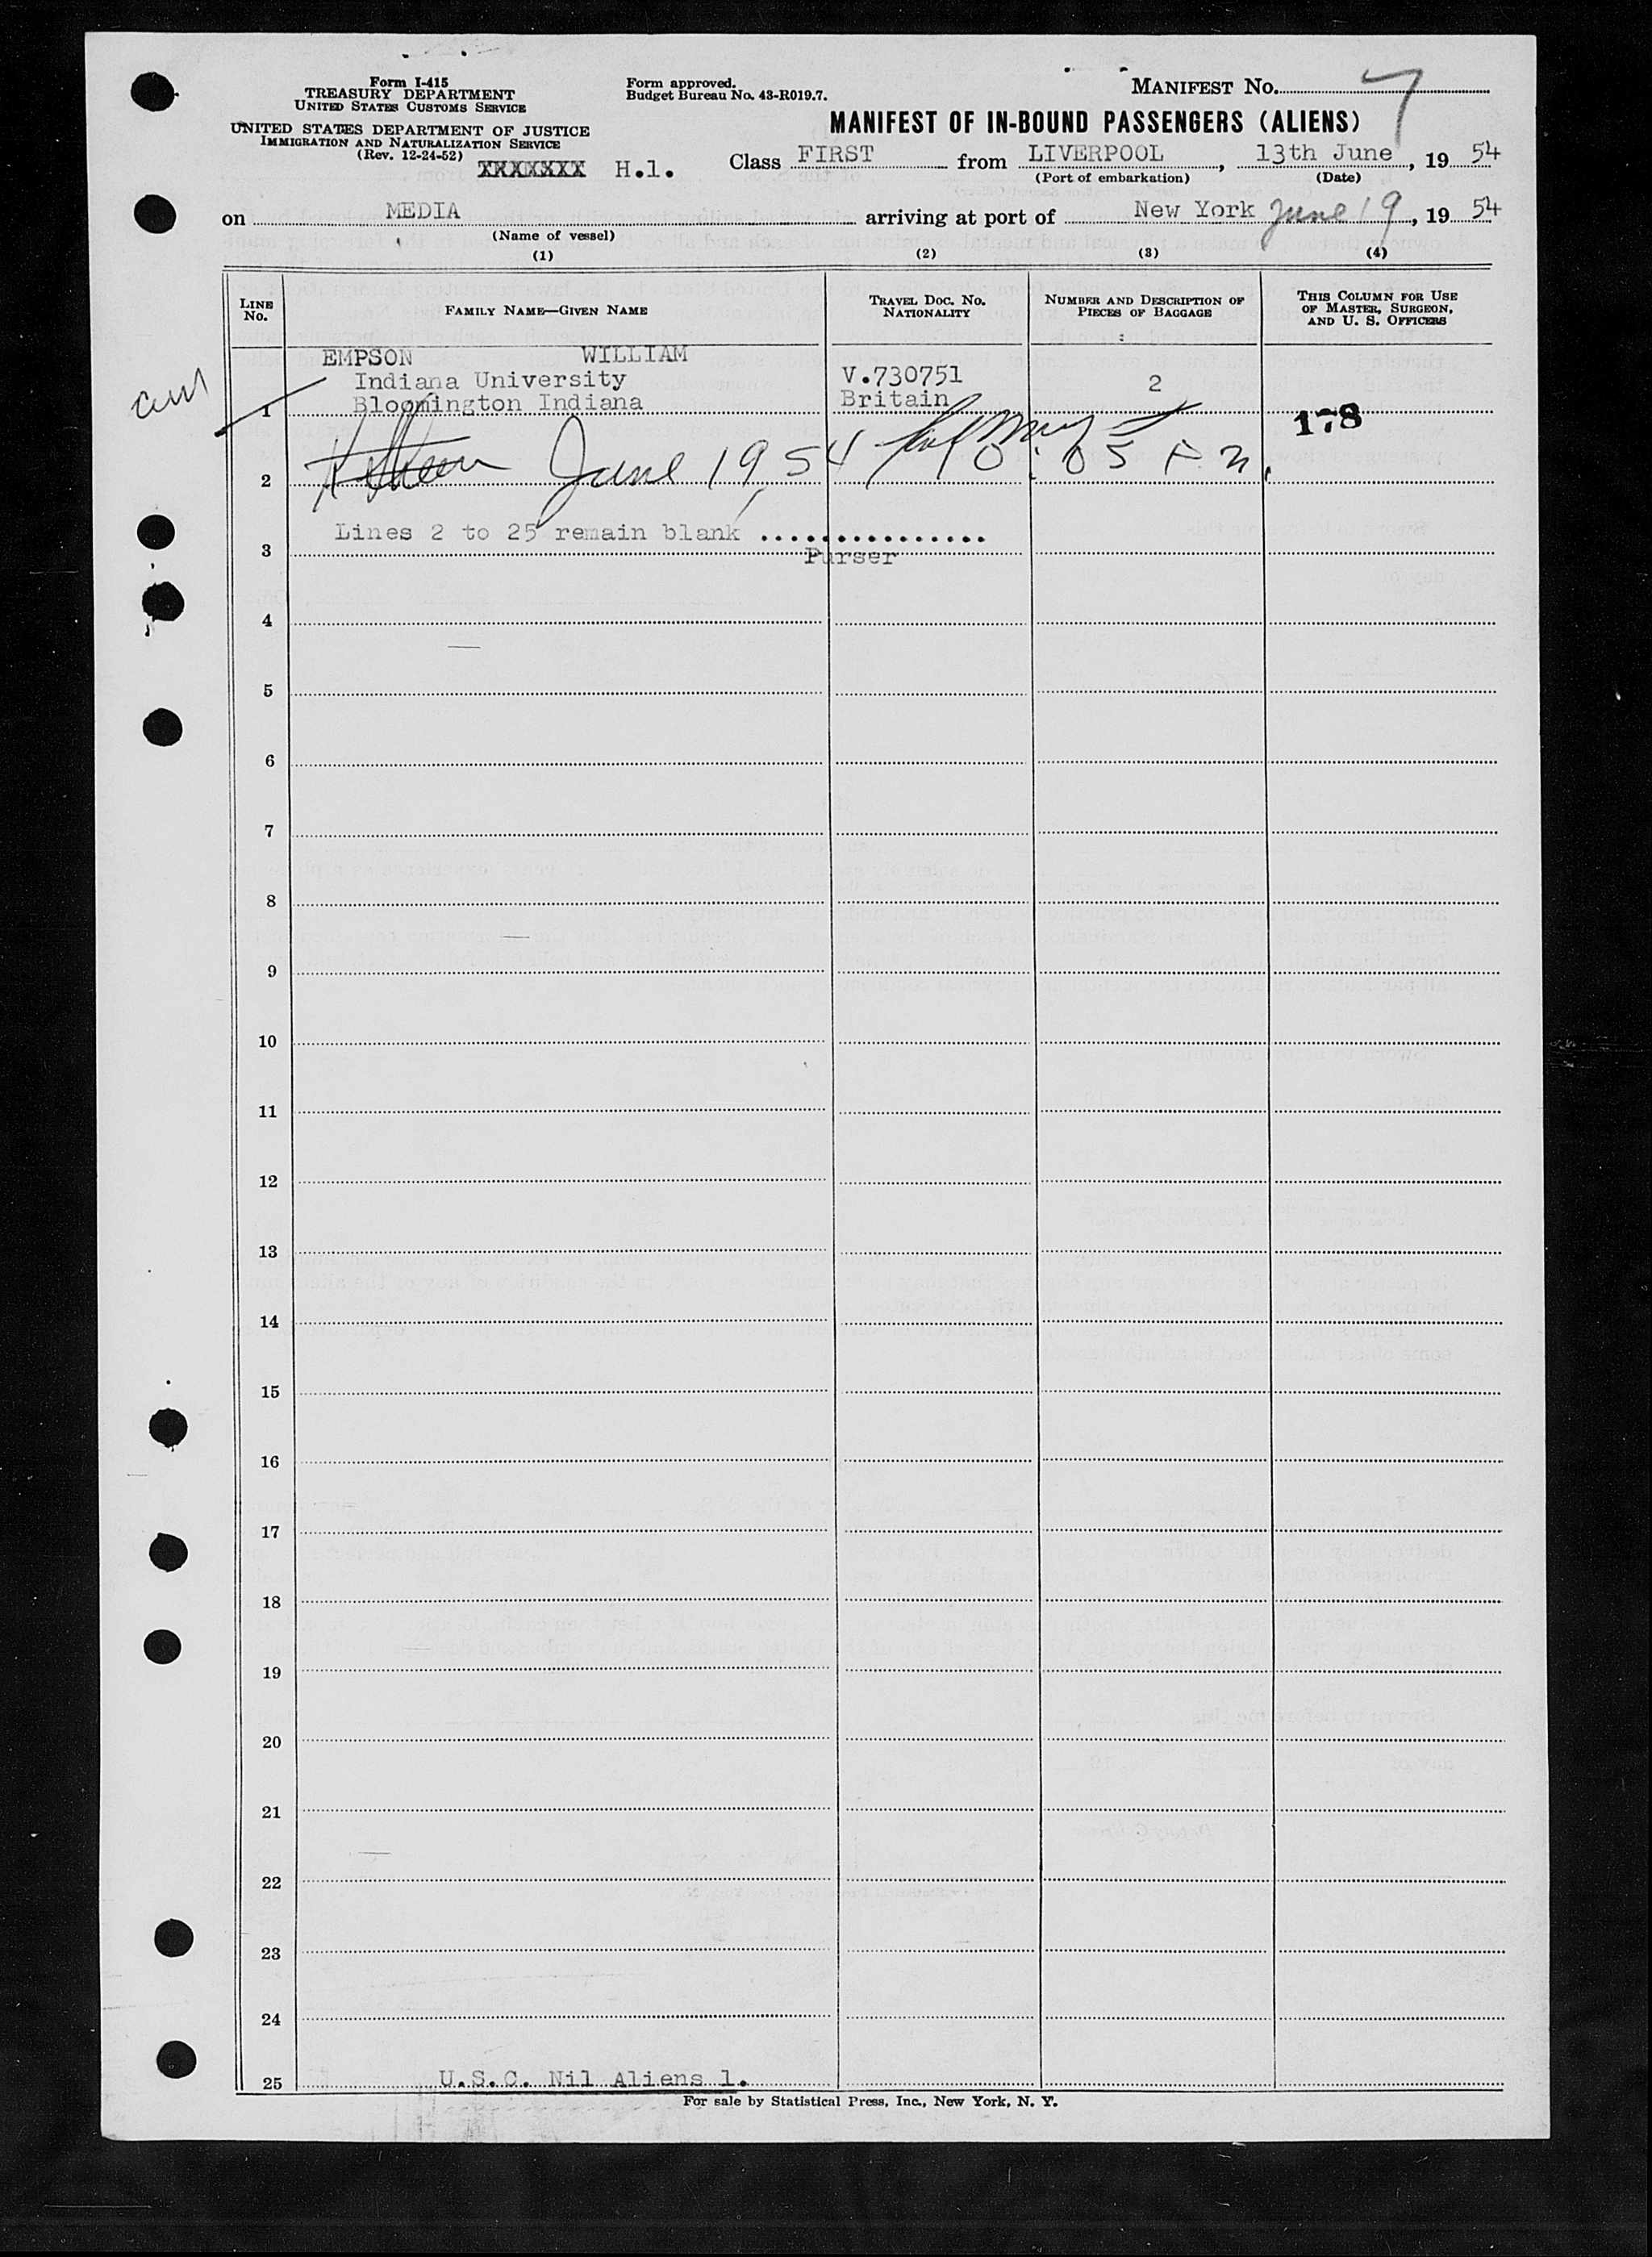 Form I-415
TREASURY DEPARTMENT
UNITED STATES CUSTOMS SERVICE
UNITED STATES DEPARTMENT OF JUSTICE
IMMIGRATION AND NATURALIZATION SERVICE
(Rev. 12-24-52)
XXXXXXX H.1.
Form approved.
Budget Bureau No. 43-R019.7.
MANIFEST No. 7
MANIFEST OF IN-BOUND PASSENGERS (ALIENS)
Class FIRST from LIVERPOOL, 13th June, 19 54
(Port of embarkation) (Date)
on MEDIA arriving at port of New York June 19, 19 54
(Name of vessel)
(1) (2) (3) (4)
LINE No. FAMILY NAME—GIVEN NAME TRAVEL DOC. No. NATIONALITY NUMBER AND DESCRIPTION OF PIECES OF BAGGAGE THIS COLUMN FOR USE OF MASTER, SURGEON, AND U. S. OFFICERS
EMPSON WILLIAM
Indiana University V.730751 2
1 Bloomington Indiana Britain 178
2 June 19, 54
Lines 2 to 25 remain blank ...............
3 Purser
4
5
6
7
8
9
10
11
12
13
14
15
16
17
18
19
20
21
22
23
24
25 U.S.C. Nil Aliens 1.
For sale by Statistical Press, Inc., New York, N. Y.